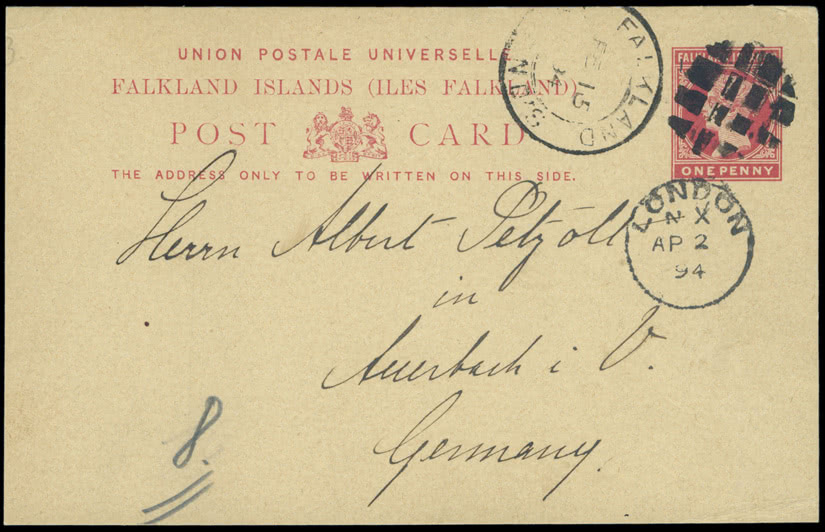 UNION POSTALE UNIVERSELLE
FALKLAND ISLANDS (ILES FALKLAND)
POST CARD
THE ADDRESS ONLY TO BE WRITTEN ON THIS SIDE.
FALKLAND
FE 15
94
ONE PENNY
LONDON
N X
AP 2
94
Herrn Albert Petzoll
in
Auerbach i V.
Germany.
8.